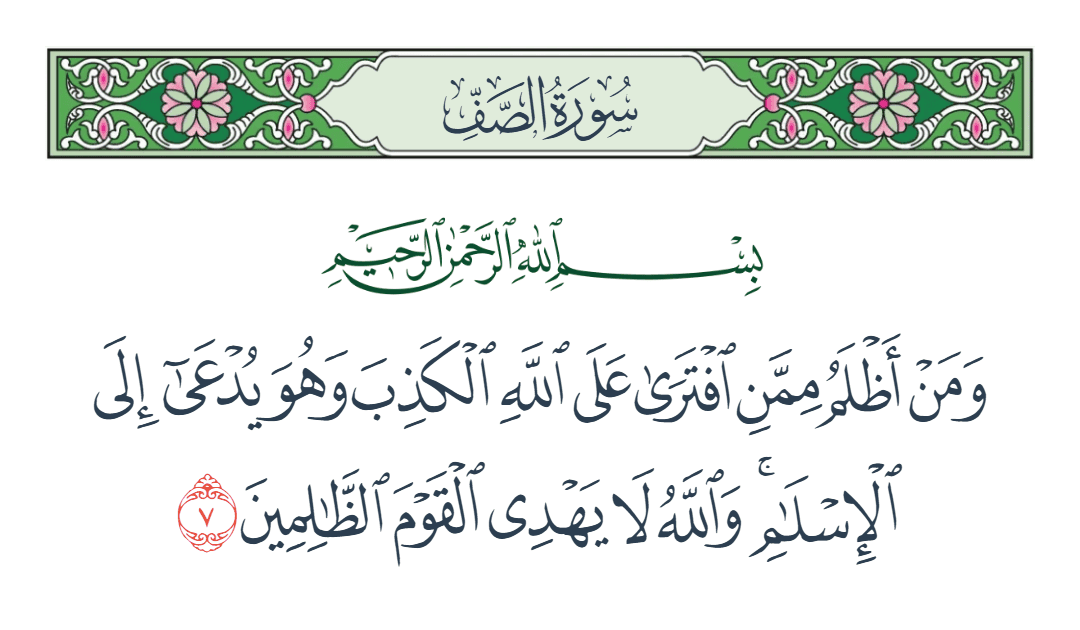 سُورَةُ الصَّفِّ
بِسْمِ ٱللَّهِ ٱلرَّحْمَٰنِ ٱلرَّحِيمِ
وَمَنْ أَظْلَمُ مِمَّنِ ٱفْتَرَىٰ عَلَى ٱللَّهِ ٱلْكَذِبَ وَهُوَ يُدْعَىٰٓ إِلَى
ٱلْإِسْلَٰمِ ۚ وَٱللَّهُ لَا يَهْدِى ٱلْقَوْمَ ٱلظَّٰلِمِينَ ٧